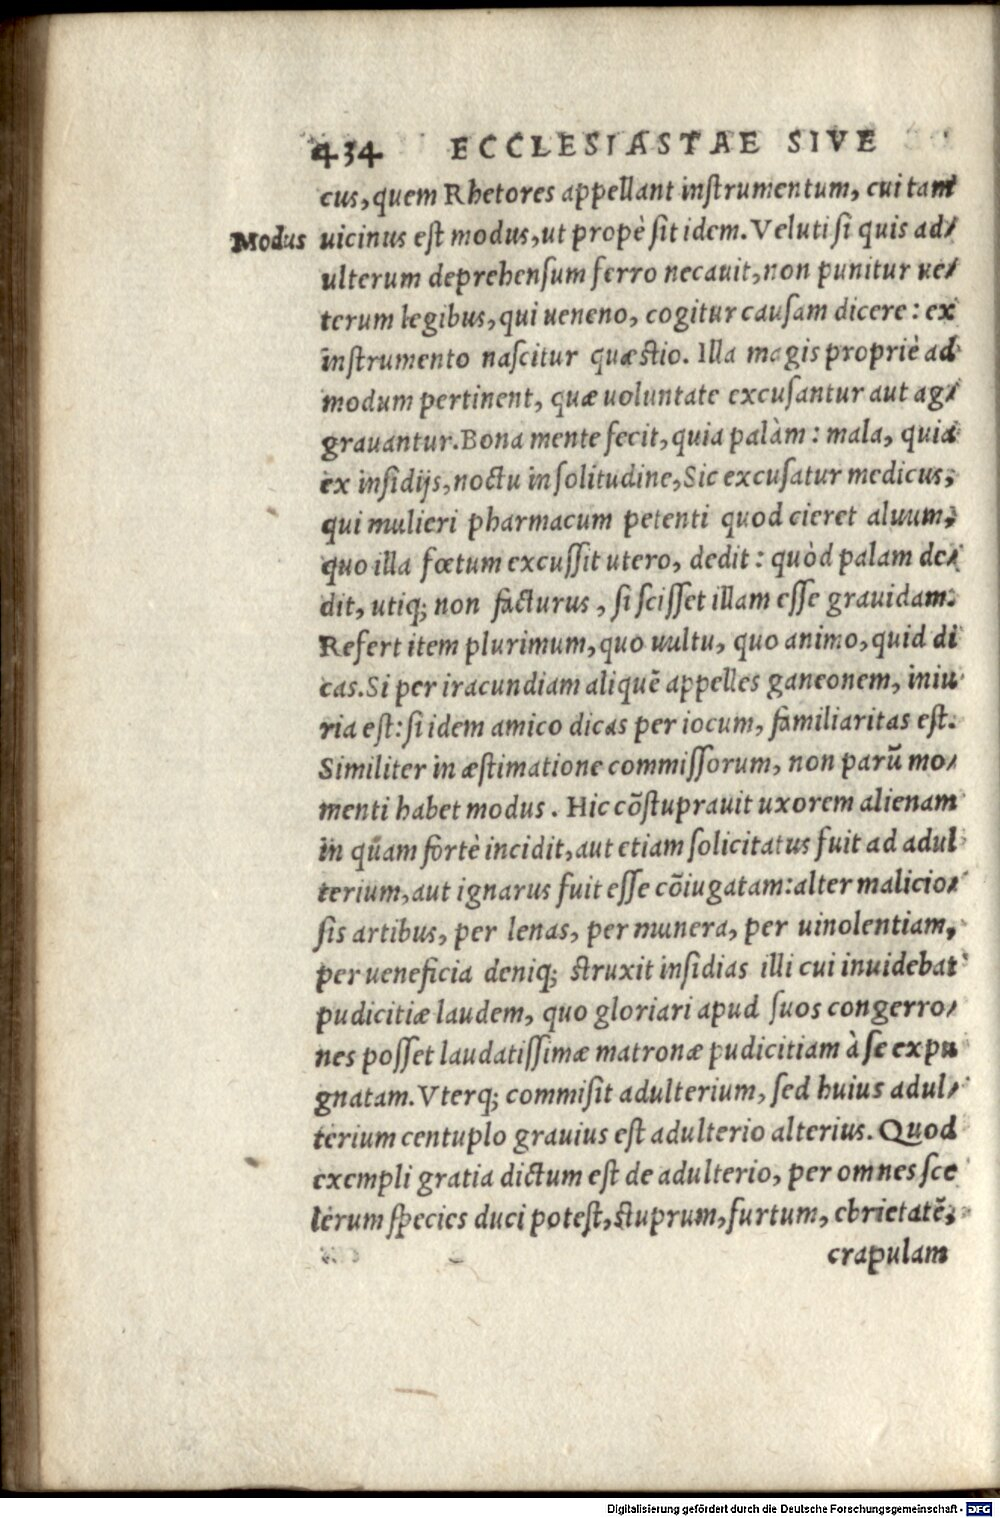 434 ECCLESIASTAE SIVE
cus, quem Rhetores appellant inſtrumentum, cui tam
Modus uicinus eſt modus, ut propè ſit idem. Veluti ſi quis ad/
ulterum deprehenſum ferro necauit, non punitur ue/
terum legibus, qui ueneno, cogitur cauſam dicere: ex
inſtrumento naſcitur quæſtio. Illa magis propriè ad
modum pertinent, quæ uoluntate excuſantur aut ag/
grauantur. Bona mente fecit, quia palàm: mala, quia
ex inſidijs, noctu in ſolitudine, Sic excuſatur medicus,
qui mulieri pharmacum petenti quod cieret aluum,
quo illa fœtum excuſſit utero, dedit: quòd palam de/
dit, utiq; non facturus, ſi ſciſſet illam eſſe grauidam.
Refert item plurimum, quo uultu, quo animo, quid di
cas. Si per iracundiam aliquē appelles ganeonem, iniu
ria eſt: ſi idem amico dicas per iocum, familiaritas eſt.
Similiter in æſtimatione commiſſorum, non parū mo/
menti habet modus. Hic cōſtuprauit uxorem alienam
in quam fortè incidit, aut etiam ſolicitatus fuit ad adul
terium, aut ignarus fuit eſſe cōiugatam: alter malicio/
ſis artibus, per lenas, per munera, per uinolentiam,
per ueneficia deniq; ſtruxit inſidias illi cui inuidebat
pudicitiæ laudem, quo gloriari apud ſuos congerro/
nes poſſet laudatiſſimæ matronæ pudicitiam à ſe expu
gnatam. Vterq; commiſit adulterium, ſed huius adul/
terium centuplo grauius eſt adulterio alterius. Quod
exempli gratia dictum est de adulterio, per omnes ſce
lerum ſpecies duci poteſt, ſtuprum, furtum, ebrietatē,
crapulam
Digitalisierung gefördert durch die Deutsche Forschungsgemeinschaft - DFG